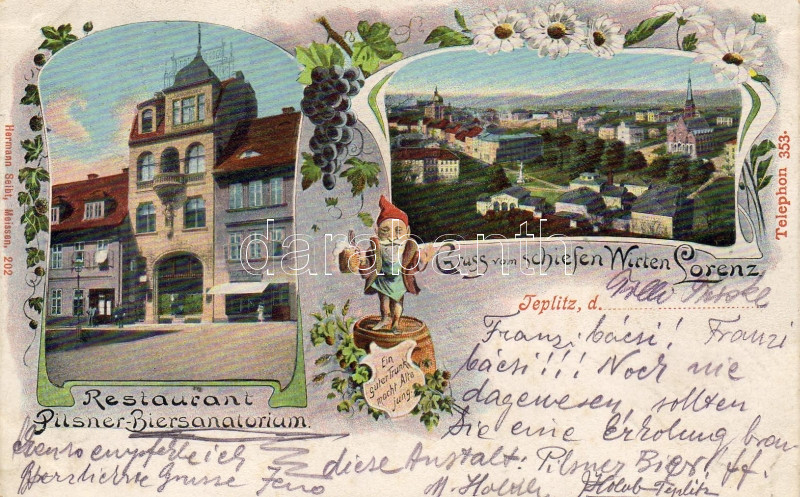 Hermann Seibt, Meissen. 202
Telephon 353.
darabanth
Gruss vom schiefen Wirten Lorenz.
Teplitz, d.
Ein
guter Trunk
macht Alte
jung.
Restaurant
Pilsner-Biersanatorium.
Franzi bácsi! Franzi
bácsi!!! Noch nie
dagewesen, sollten
Sie eine Erholung
diese Anstalt: Pilsner Bier
Ebenso empfehle ich
Herzlichste Grüsse Jeno
Holub-Teplitz